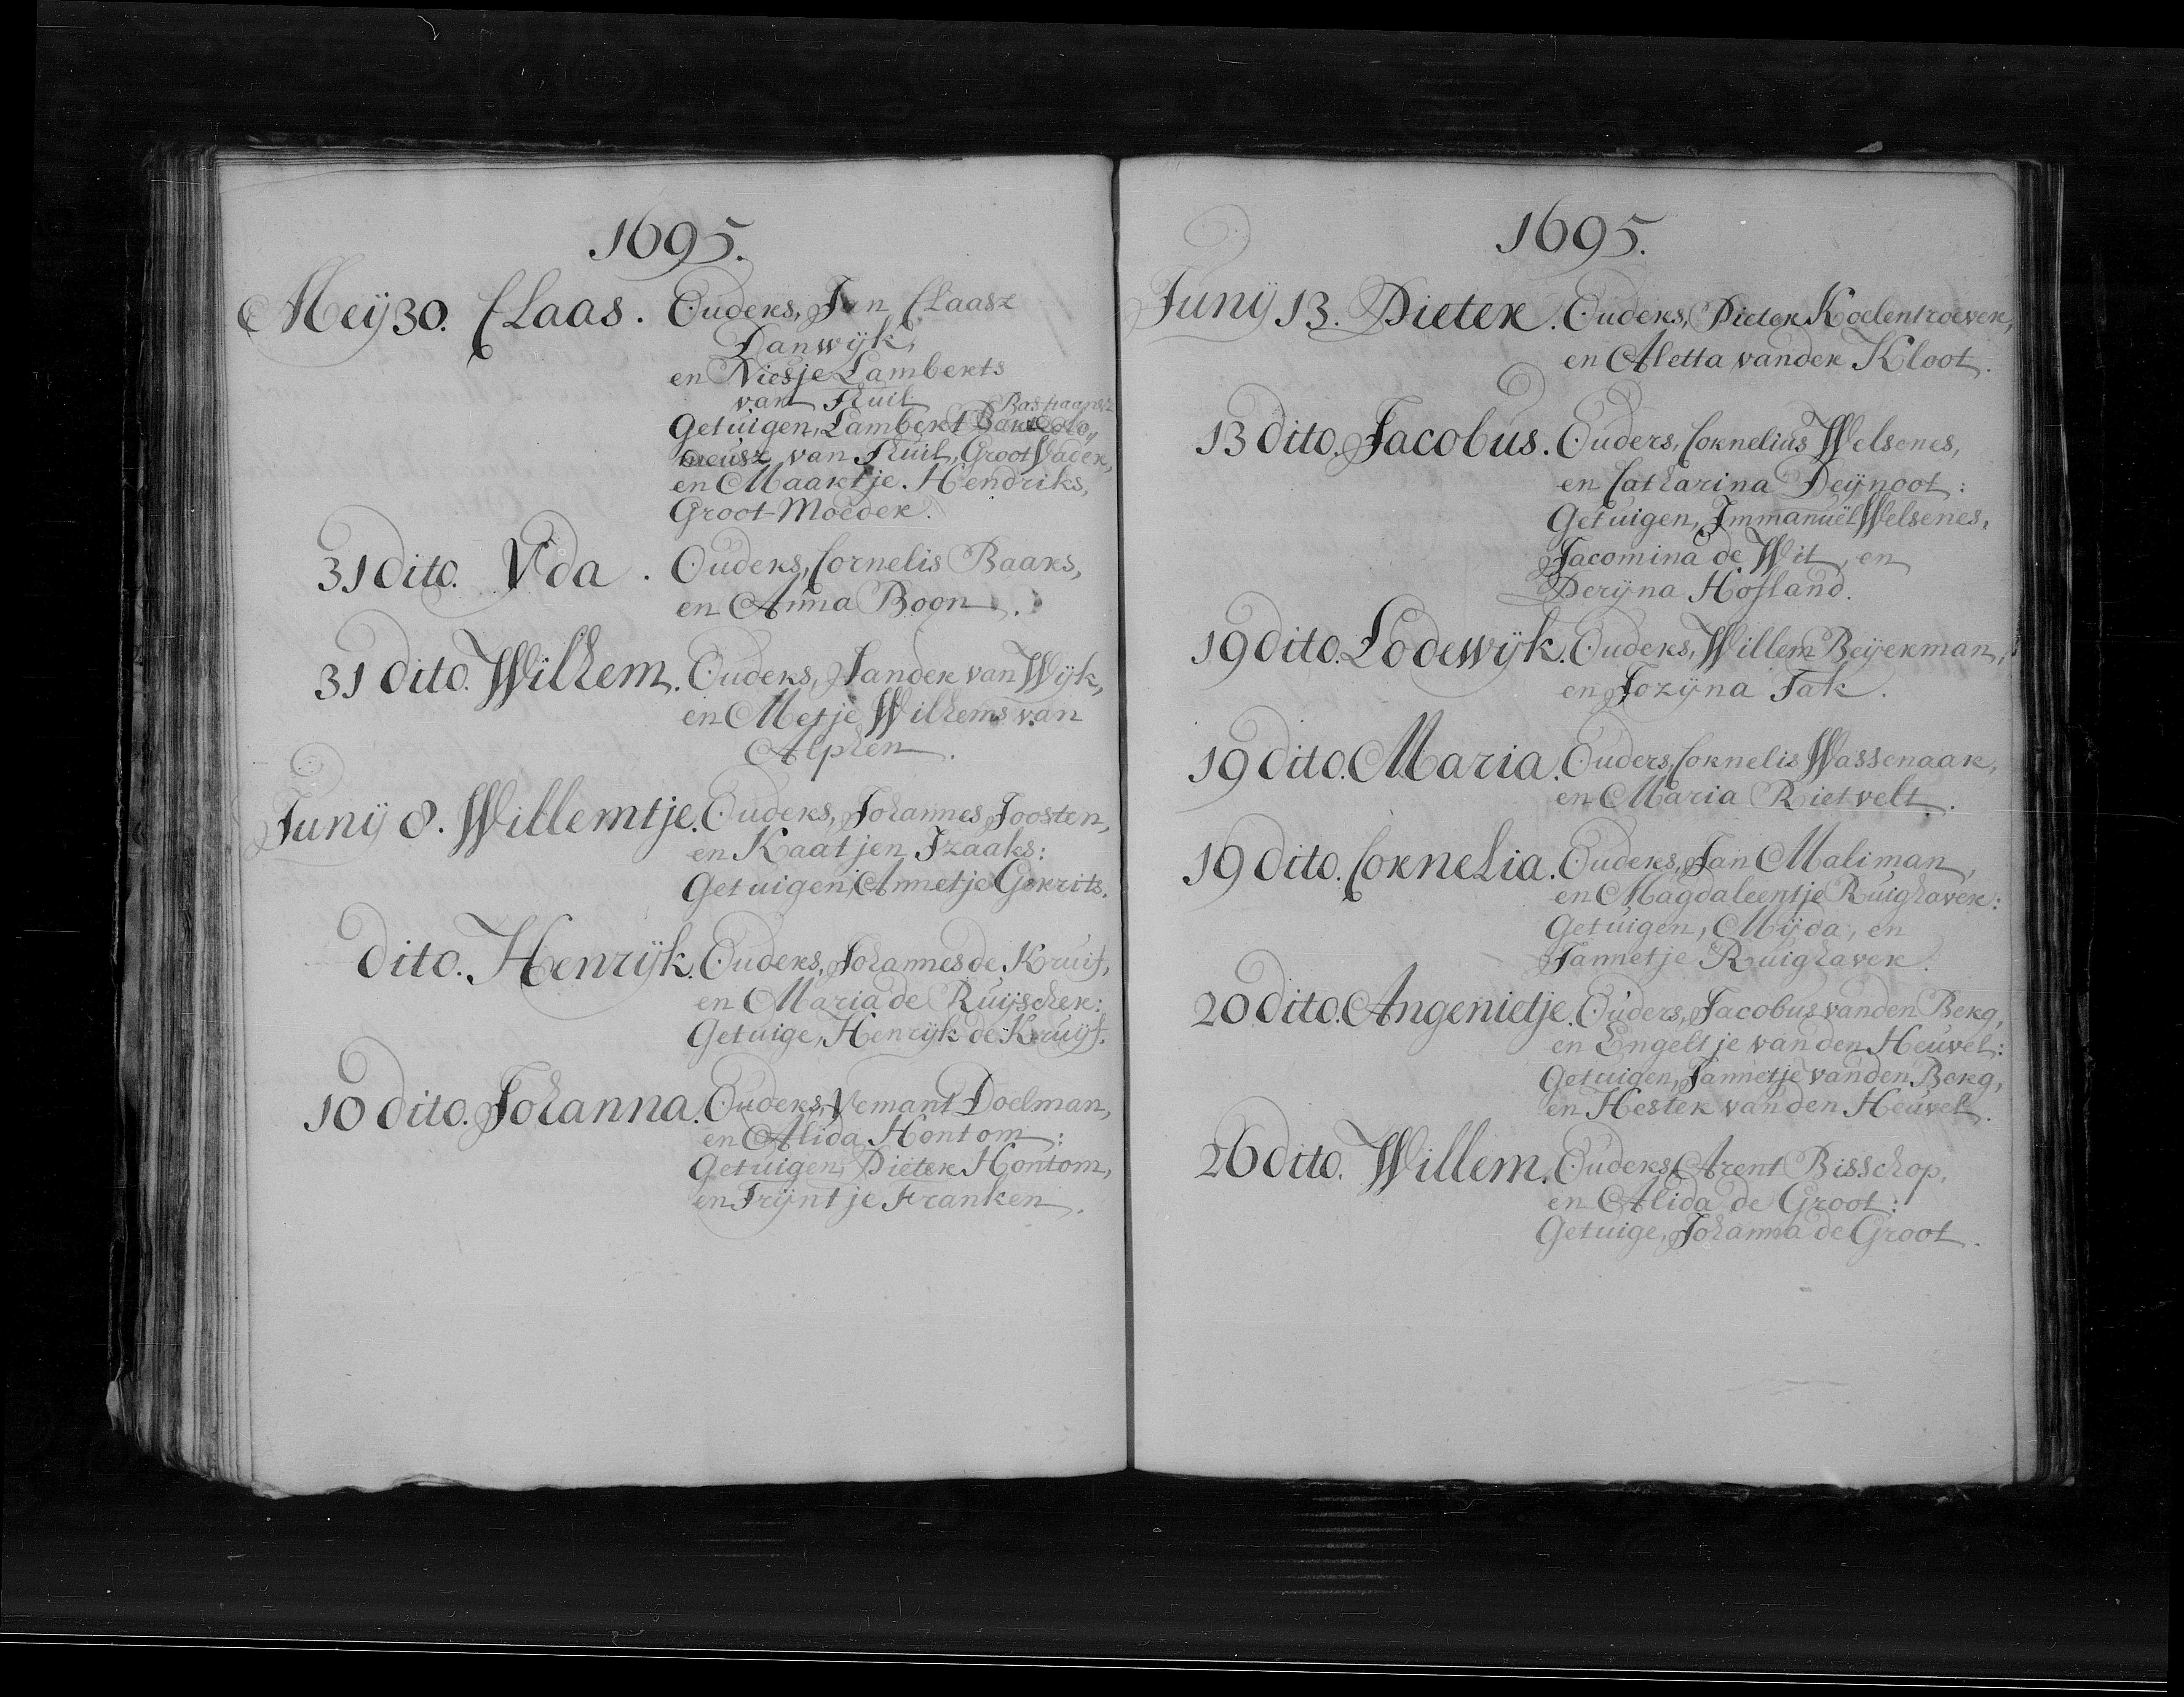 1695.
Meij 30. Claas. Ouders, Jan Claasz
Danwijk,
en Niesje Lamberts
van Tuil
Bastiaansz
Getuigen, Lambert Bartolo,,
meusz van Tuil, Groot Vader,
en Maartje Hendriks,
Groot-Moeder.
31 dito. Yda. Ouders, Cornelis Baars,
en Anna Boon.
31 dito. Wilhem. Ouders, Sander van Wijk,
en Metje Wilhems van
Alphen.
Junij 8. Willemtje. Ouders, Johannes Joosten,
en Kaatjen Izaaks:
Getuigen, Annetje Gerrits.
dito. Henrijk. Ouders, Johannes de Kruif,
en Maria de Ruijscher:
Getuige, Henrijk de Kruijf.
10 dito. Johanna. Ouders, Yemant Doelman,
en Alida Hontom:
Getuigen, Pieter Hontom,
en Trijntje Franken.
1695.
Junij 13. Pieter. Ouders, Pieter Koelentroever,
en Aletta vander Kloot.
13 dito. Jacobus. Ouders, Cornelius Welsenes,
en Catharina Deijnoot:
Getuigen, Immanuël Welsenes,
Jacomina de Wit, en
Derijna Hofland.
19 dito. Lodewijk. Ouders, Willem Beijerman,
en Jozijna Tak.
19 dito. Maria. Ouders, Cornelis Wassenaar,
en Maria Rietvelt.
19 dito. Cornelia. Ouders, Jan Maliman,
en Magdaleentje Ruighaver:
Getuigen, Mijda, en
Jannetje Ruighaver.
20 dito. Angenietje. Ouders, Jacobus vanden Berg,
en Engeltje van den Heuvel:
Getuigen, Jannetje vanden Berg,
en Hester van den Heuvel.
26 dito. Willem. Ouders, Arent Bisschop,
en Alida de Groot:
Getuige, Johanna de Groot.